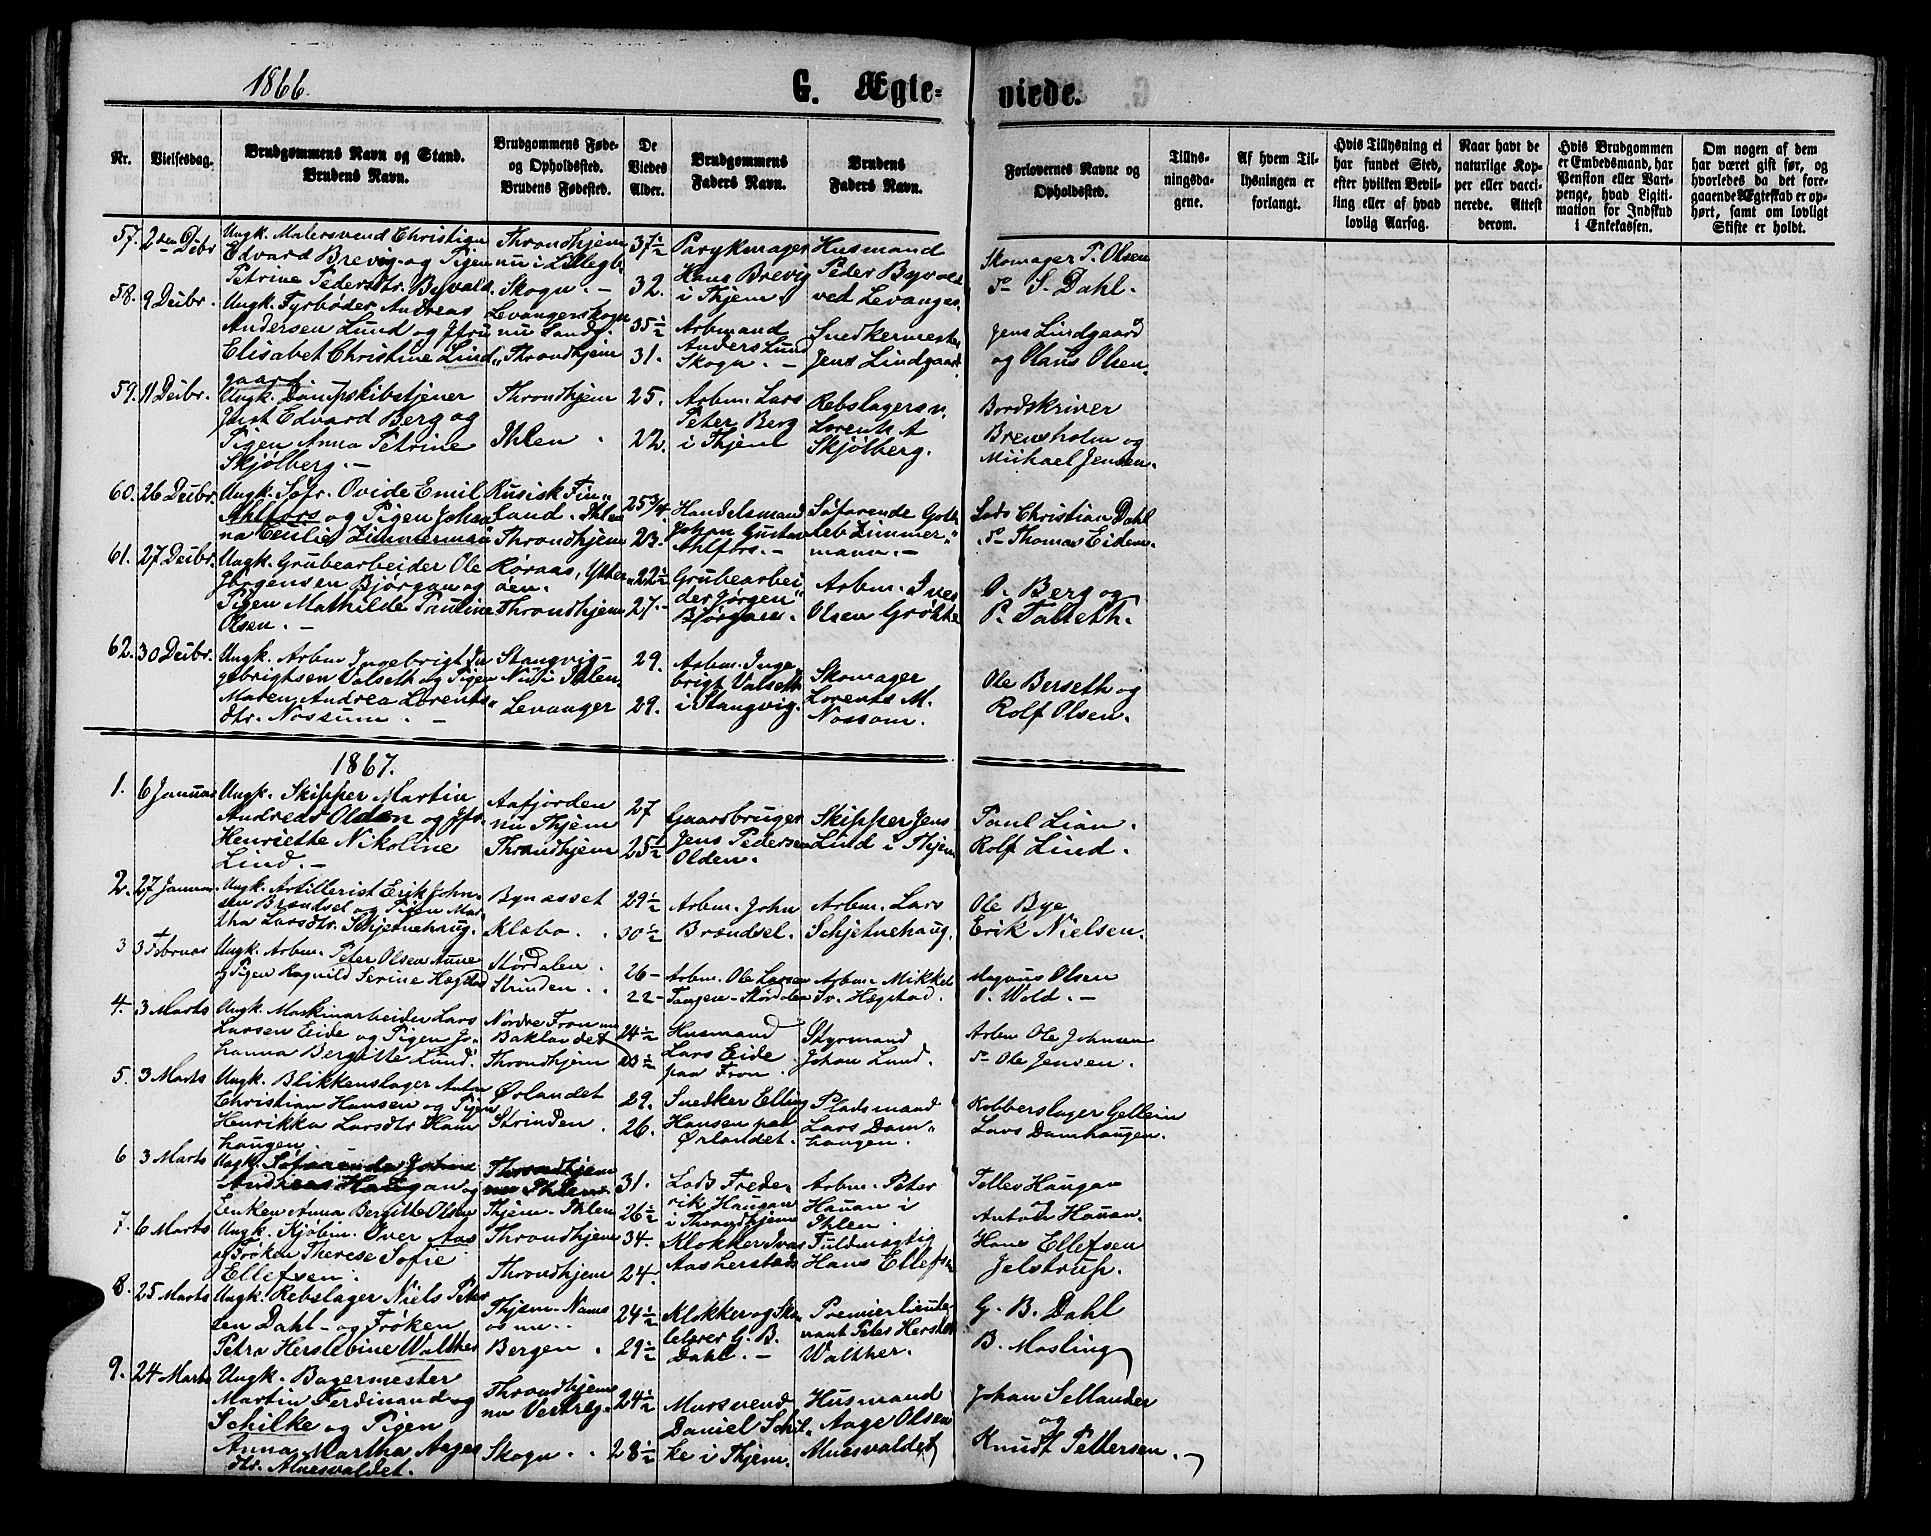 1866.
G. Ægte-
viede.
Nr.
Vielsesdag.
Brudgommens Navn og Stand.
Brudens Navn.
Brudgommens Føde-
og Opholdssted.
Brudens Fødested.
De
Viedes
Alder.
Brudgommens
Faders Navn.
Brudens
Faders Navn.
Forlovernes Navne og
Opholdssted.
Tillys-
ningsda-
gene.
Af hvem Til-
lysningen er
forlangt.
Hvis Tillysning ei
har fundet Sted,
efter hvilken Bevil-
ling eller af hvad
lovlig Aarsag.
Naar havt de
naturlige Kop-
per eller vacci-
nerede. Attest
derom.
Hvis Brudgommen
er Embedsmand, har
Pension eller Vart-
penge, hvad Ligiti-
mation for Indskud
i Enkekassen.
Om nogen af dem
har været gift før, og
hvorledes da det fore-
gaaende Ægteskab er op-
hørt, samt om lovligt
Skifte er holdt.
57. 2den Debr
Ungk. Malersvend Christian
Edvard Brevig og Pigen
Petrine Pedersdtr. Byvold.
Throndhjem
nu i Lillegb.
Skogn. -
37½
32.
Parykmager
Hans Brevig
i Thjem
Husmand
Peder Byvold
ved Levanger.
Skomager P. Olsen
do S. Dahl.
58. 9 Decbr.
Ungk. Fyrbøder Andreas
Andersen Lund og Jfru
Elisabet Christine Lind
gaard
Levangerskogn
nu Sandg.
" Throndhjem
35½
31.
Arbmand
Anders Lund
Skogn. -
Snedkermester
Jens Lindgaard
Jens Lindgaard
og Olaus Olsen.
59. 11 Decbr.
Ungk. Dampskibstjener
Just Edvard Berg og
Pigen Anna Petrine
Skjølberg. -
Throndhjem
Ihlen
25.
22.
Arbm. Lars
Peter Berg
i Thjem
Rebslagersv.
Lorents A
Skjølberg.
Bordskriver
Brensholm og
Mikael Jensen.
60. 26 Decbr.
Ungk. Søfr. Ovide Emil
Ahlfors og Pigen Johan
na Cecilie Zimmerman
Rusisk Fin"
land. Ihlen
Throndhjem
25 3/4.
23.
Handelsmand
Johan Gustav
Ahlfors. -
Søfarende Gott
leb Zimmer"
mann. -
Lods Christian Dahl
do Thomas Eidem.
61. 27 Decbr.
Ungk. Grubearbeider Ole
Jørgensen Bjørgan og
Pigen Mathilde Pauline
Olsen. -
Røraas, Ytter
øen.
Throndhjem
22½
27. -
Grubearbei
der Jørgen
Bjørgan.
Arbm. Iver
Olsen Grøtte
O. Berg og
P. Talleth.
62. 30 Decbr.
Ungk. Arbm Ingebrigt In
gebrigtsen Valseth og Pigen
Maren Andrea Lorents"
dtr. Nossum. -
Stangvig -
Nu i Ihlen.
Levanger
29.
29.
Arbm. Inge
brigt Valseth
i Stangvig.
Skomager
Lorents M.
Nossom.
Ole Berseth og
Rolf Olsen.
1867.
1. 6 Januar
Ungk. Skipper Martin
Andreas Olden og Jfr.
Henriette Nikoline
Lind. -
Aafjorden
nu Thjem
Throndhjem
27
25½
Gaardbruger
Jens Pedersen
Olden.
Skipper Jens
Lind i Thjem
Paul Lian.
Rolf Lind.
2. 27 Januar.
Ungk. Artillerist Erik John-
sen Brøndsel og Pigen Mar
tha Larsdtr. Schjetnehaug.
Bynesset
Klæbo.
29½
30½
Arbm. John
Brøndsel.
Arbm. Lars
Schjetnehaug.
Ole Bye
Erik Nielsen.
3 3 Februar
Ungk. Arbm. Peter Olsen Aune
og Pigen Ragnild Serine Hægstad
Størdalen.
Strinden.
26 -
22 -
Arbm. Ole Larsen
Tangen - Størdalen
Arbm. Mikkel
Sv. Hægstad.
Magnus Olsen
O. Wold. -
4. 3 Marts
Ungk. Maskinarbeider Lars
Larsen Eide og Pigen Jo-
hanna Bergitte Lund.
Nordre Fron nu
Baklandet
Throndhjem
24½
23½
Husmand
Lars Eide
paa Fron.
Styrmand
Johan Lund.
Arbm Ole Johnsen
do Ole Jensen.
5. 3 Marts
Ungk. Blikkenslager Anton
Christian Hansen og Pigen
Henrikka Larsdtr Dam
haugen.
Ørlandet
Strinden.
29.
26.
Snedker Elling
Hansen paa
Ørlandet.
Pladsmand
Lars Dam"
haugen.
Kobberslager Gellein
Lars Damhaugen.
6 3 Marts
Ungk. Søfarende Johan
Andreas Haugan og
Enken Anna Bergitte Olsen
Throndhjem
nu Ihlen.
Thjem - Ihlen
31.
26½
Lods Frede
rik Haugan
i Throndhjem
Arbm. Peter
Hauan i
Ihlen.
Tellev Haugan
Anton Hauan.
7. 6 Marts
Ungk. Kjøbm. Over Aas
og Frøken Therese Sofie
Ellefsen.
Throndhjem
Throndhjem
34.
24.
Klokker Ivar
Aas
Fuldmægtig
Hans Ellefsen
Hans Ellefsen
Jelstrup.
8. 25 Marts
Ungk. Rebslager Niels Peter
ten Dahl - og Frøken
Petra Herslebine Walther
Thjem - Nams
os nu.
Bergen.
24½
29½
Klokker og Sko
lelærer G. B.
Dahl. -
Premierlieute-
nant Peter Hersleb
Walther.
G. B. Dahl
B. Mosling
9. 24 Marts
Ungk. Bagermester
Martin Ferdinand
Schilke og Pigen
Anna Martha Aages
dtr. Aluesvaldet.
Throndhjem
nu Verdreg.
Skogn.
24½
28½
Mursvend
Daniel Schil"
ke i Thjem.
Husmand
Aage Olsen
Aluesvaldet
Johan Sellander
og
Knudt Pettersen.